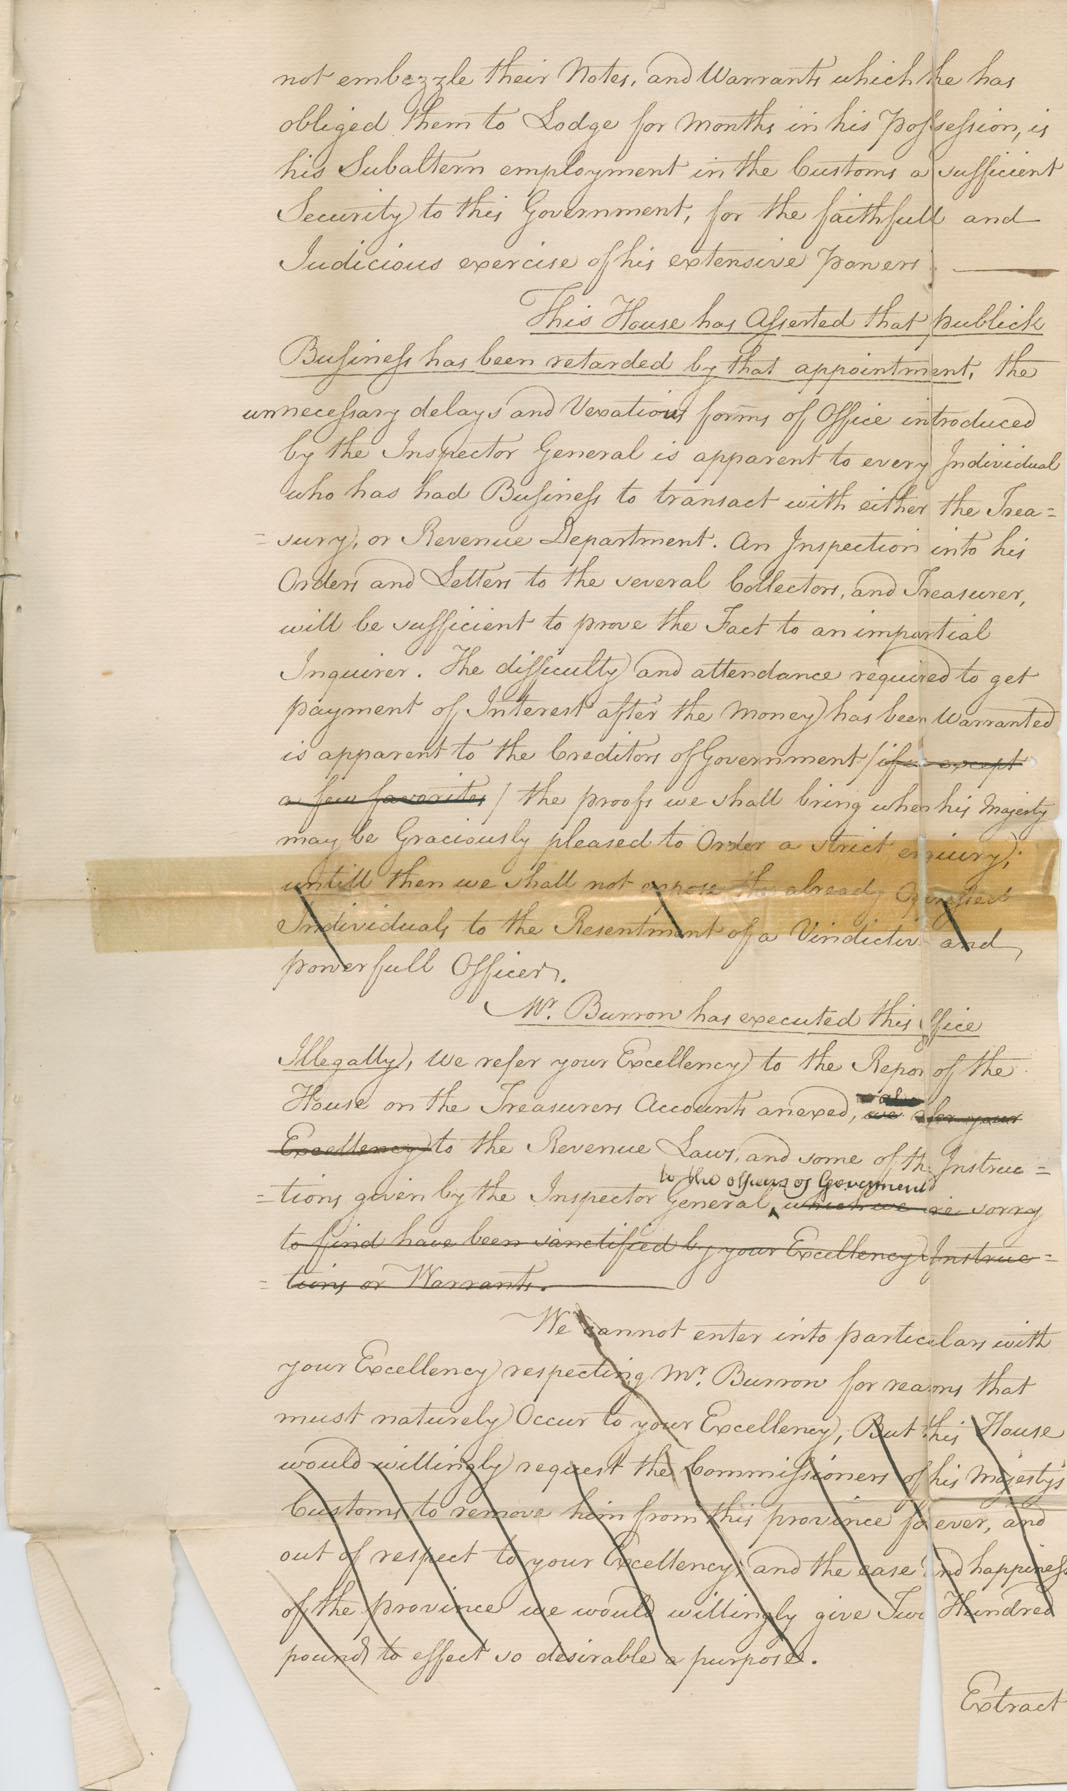 not embezzle their Notes, and Warrants which he has
obliged them to Lodge for Months in his Possession, is
his Subaltern employment in the Customs a sufficient
Security to this Government, for the faithfull and
Judicious exercise of his extensive Powers.
This House has Asserted that publick
Business has been retarded by that appointment, the
unnecessary delays and Vexatious forms of Office introduced
by the Inspector General is apparent to every Individual
who has had Business to transact with either the Trea=
=sury, or Revenue Department. An Inspection into his
Orders and Letters to the several Collectors, and Treasurer,
will be sufficient to prove the Fact to an impartial
Inquirer. The difficulty and attendance required to get
payment of Interest after the Money has been Warranted
is apparent to the Creditors of Government / except
a few favorites / the proofs we shall bring when his Majesty
may be Graciously pleased to Order a strict enquiry;
untill then we shall not expose the already Oppressed
Individuals to the Resentment of a Vindictive and
powerfull Officer.
Mr. Burrow has executed this Office
Illegally, We refer your Excellency to the Report of the
House on the Treasurers Accounts anexed, we refer your
Excellency to the Revenue Laws, and some of the Instruc=
to the officers of Goverment
=tions given by the Inspector General, which we are sorry
to find have been sanctified by your Excellency's Instruc=
=tions or Warrants.
We cannot enter into particulars with
your Excellency respecting Mr. Burrow for reasons that
must naturely Occur to your Excellency, But this House
would willingly request the Commissioners of his Majesty's
Customs to remove him from this province forever, and
out of respect to your Excellency; and the ease and happiness
of the province we would willingly give Two Hundred
pounds to effect so desirable a purpose.
Extract